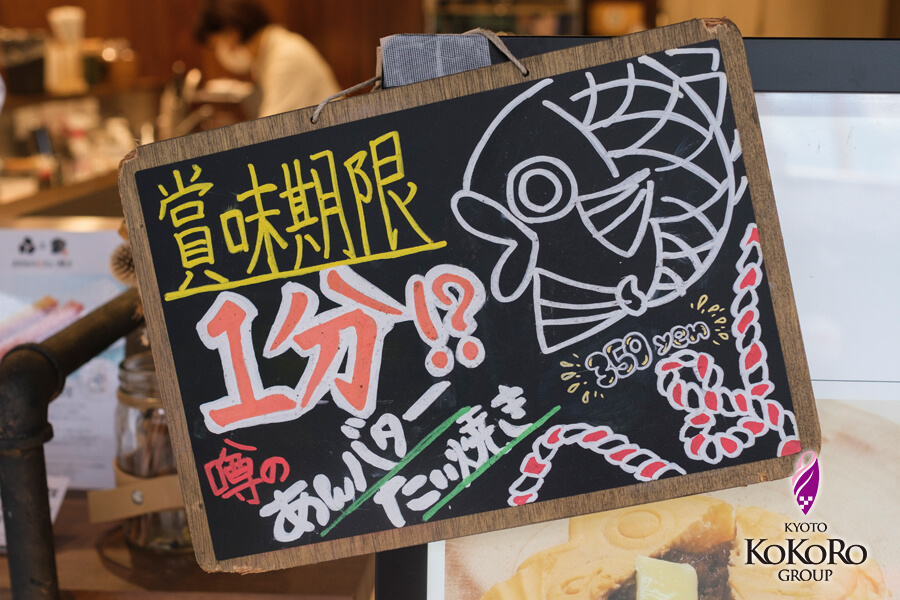 賞味期限
1分!?
噂の
あんバター
たい焼き
359 yen
KYOTO
KOKORO
GROUP